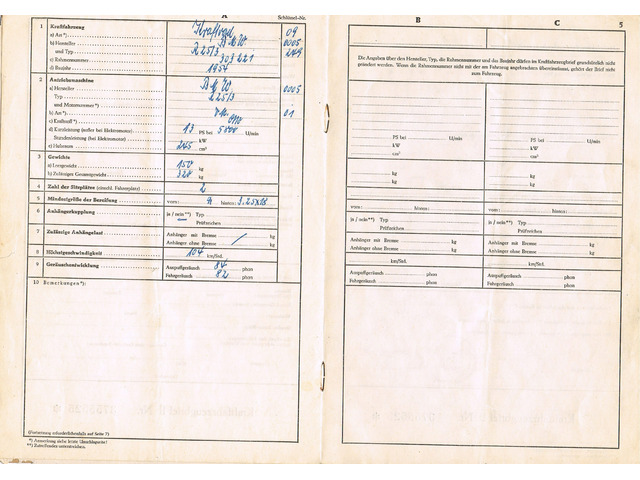 A Schlüssel-Nr.
1 Kraftfahrzeug
a) Art*) Kraftrad 09
b) Hersteller BMW 0005
und Typ R 25/3 249
c) Rahmennummer 303221
d) Baujahr 1954
2 Antriebsmaschine
a) Hersteller BMW 0005
Typ R 25/3
und Motornummer*)
b) Art*) 01
c) Kraftstoff*)
d) Nutzleistung (außer bei Elektromotor) 13 PS bei 5800 U/min
Stundenleistung (bei Elektromotor) kW
e) Hubraum 245 cm³
3 Gewichte
a) Leergewicht 150 kg
b) Zulässiges Gesamtgewicht 320 kg
4 Zahl der Sitzplätze (einschl. Fahrerplatz) 2
5 Mindestgröße der Bereifung vorn: hinten: 3.25x18
6 Anhängerkupplung ja / nein**) Typ
Prüfzeichen
7 Zulässige Anhängelast Anhänger mit Bremse kg
Anhänger ohne Bremse kg
8 Höchstgeschwindigkeit 104 km/Std.
9 Geräuschentwicklung Auspuffgeräusch 84 phon
Fahrgeräusch 82 phon
10 Bemerkungen*):
(Fortsetzung erforderlichenfalls auf Seite 7)
*) Anmerkung siehe letzte Umschlagseite!
**) Zutreffendes unterstreichen.
B C 5
Die Angaben über den Hersteller, Typ, die Rahmennummer und das Baujahr dürfen im Kraftfahrzeugbrief grundsätzlich nicht
geändert werden. Wenn die Rahmennummer nicht mit der am Fahrzeug angebrachten übereinstimmt, gehört der Brief nicht
zum Fahrzeug.
PS bei U/min PS bei U/min
kW kW
cm³ cm³
kg kg
kg kg
vorn: hinten: vorn: hinten:
ja / nein**) Typ ja / nein**) Typ
Prüfzeichen Prüfzeichen
Anhänger mit Bremse kg Anhänger mit Bremse kg
Anhänger ohne Bremse kg Anhänger ohne Bremse kg
km/Std. km/Std.
Auspuffgeräusch phon Auspuffgeräusch phon
Fahrgeräusch phon Fahrgeräusch phon